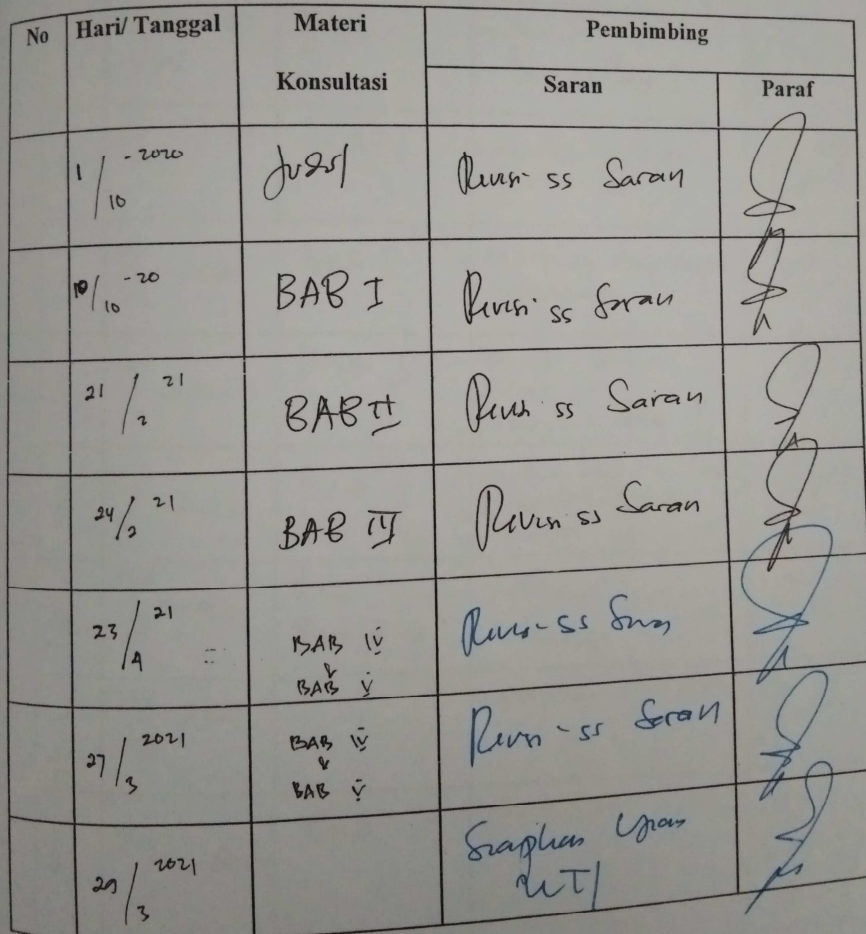 No Hari/ Tanggal Materi Konsultasi Pembimbing
Saran Paraf
1/10 -2020 Judul Revisi ss Saran
10/10 -20 BAB I Revisi ss Saran
21/2 21 BAB II Revisi ss Saran
24/2 21 BAB III Revisi ss Saran
23/4 21 BAB IV & BAB V Revisi-ss Saran
27/3 2021 BAB IV & BAB V Revisi-ss Saran
29/3 2021 Siapkan Ujian